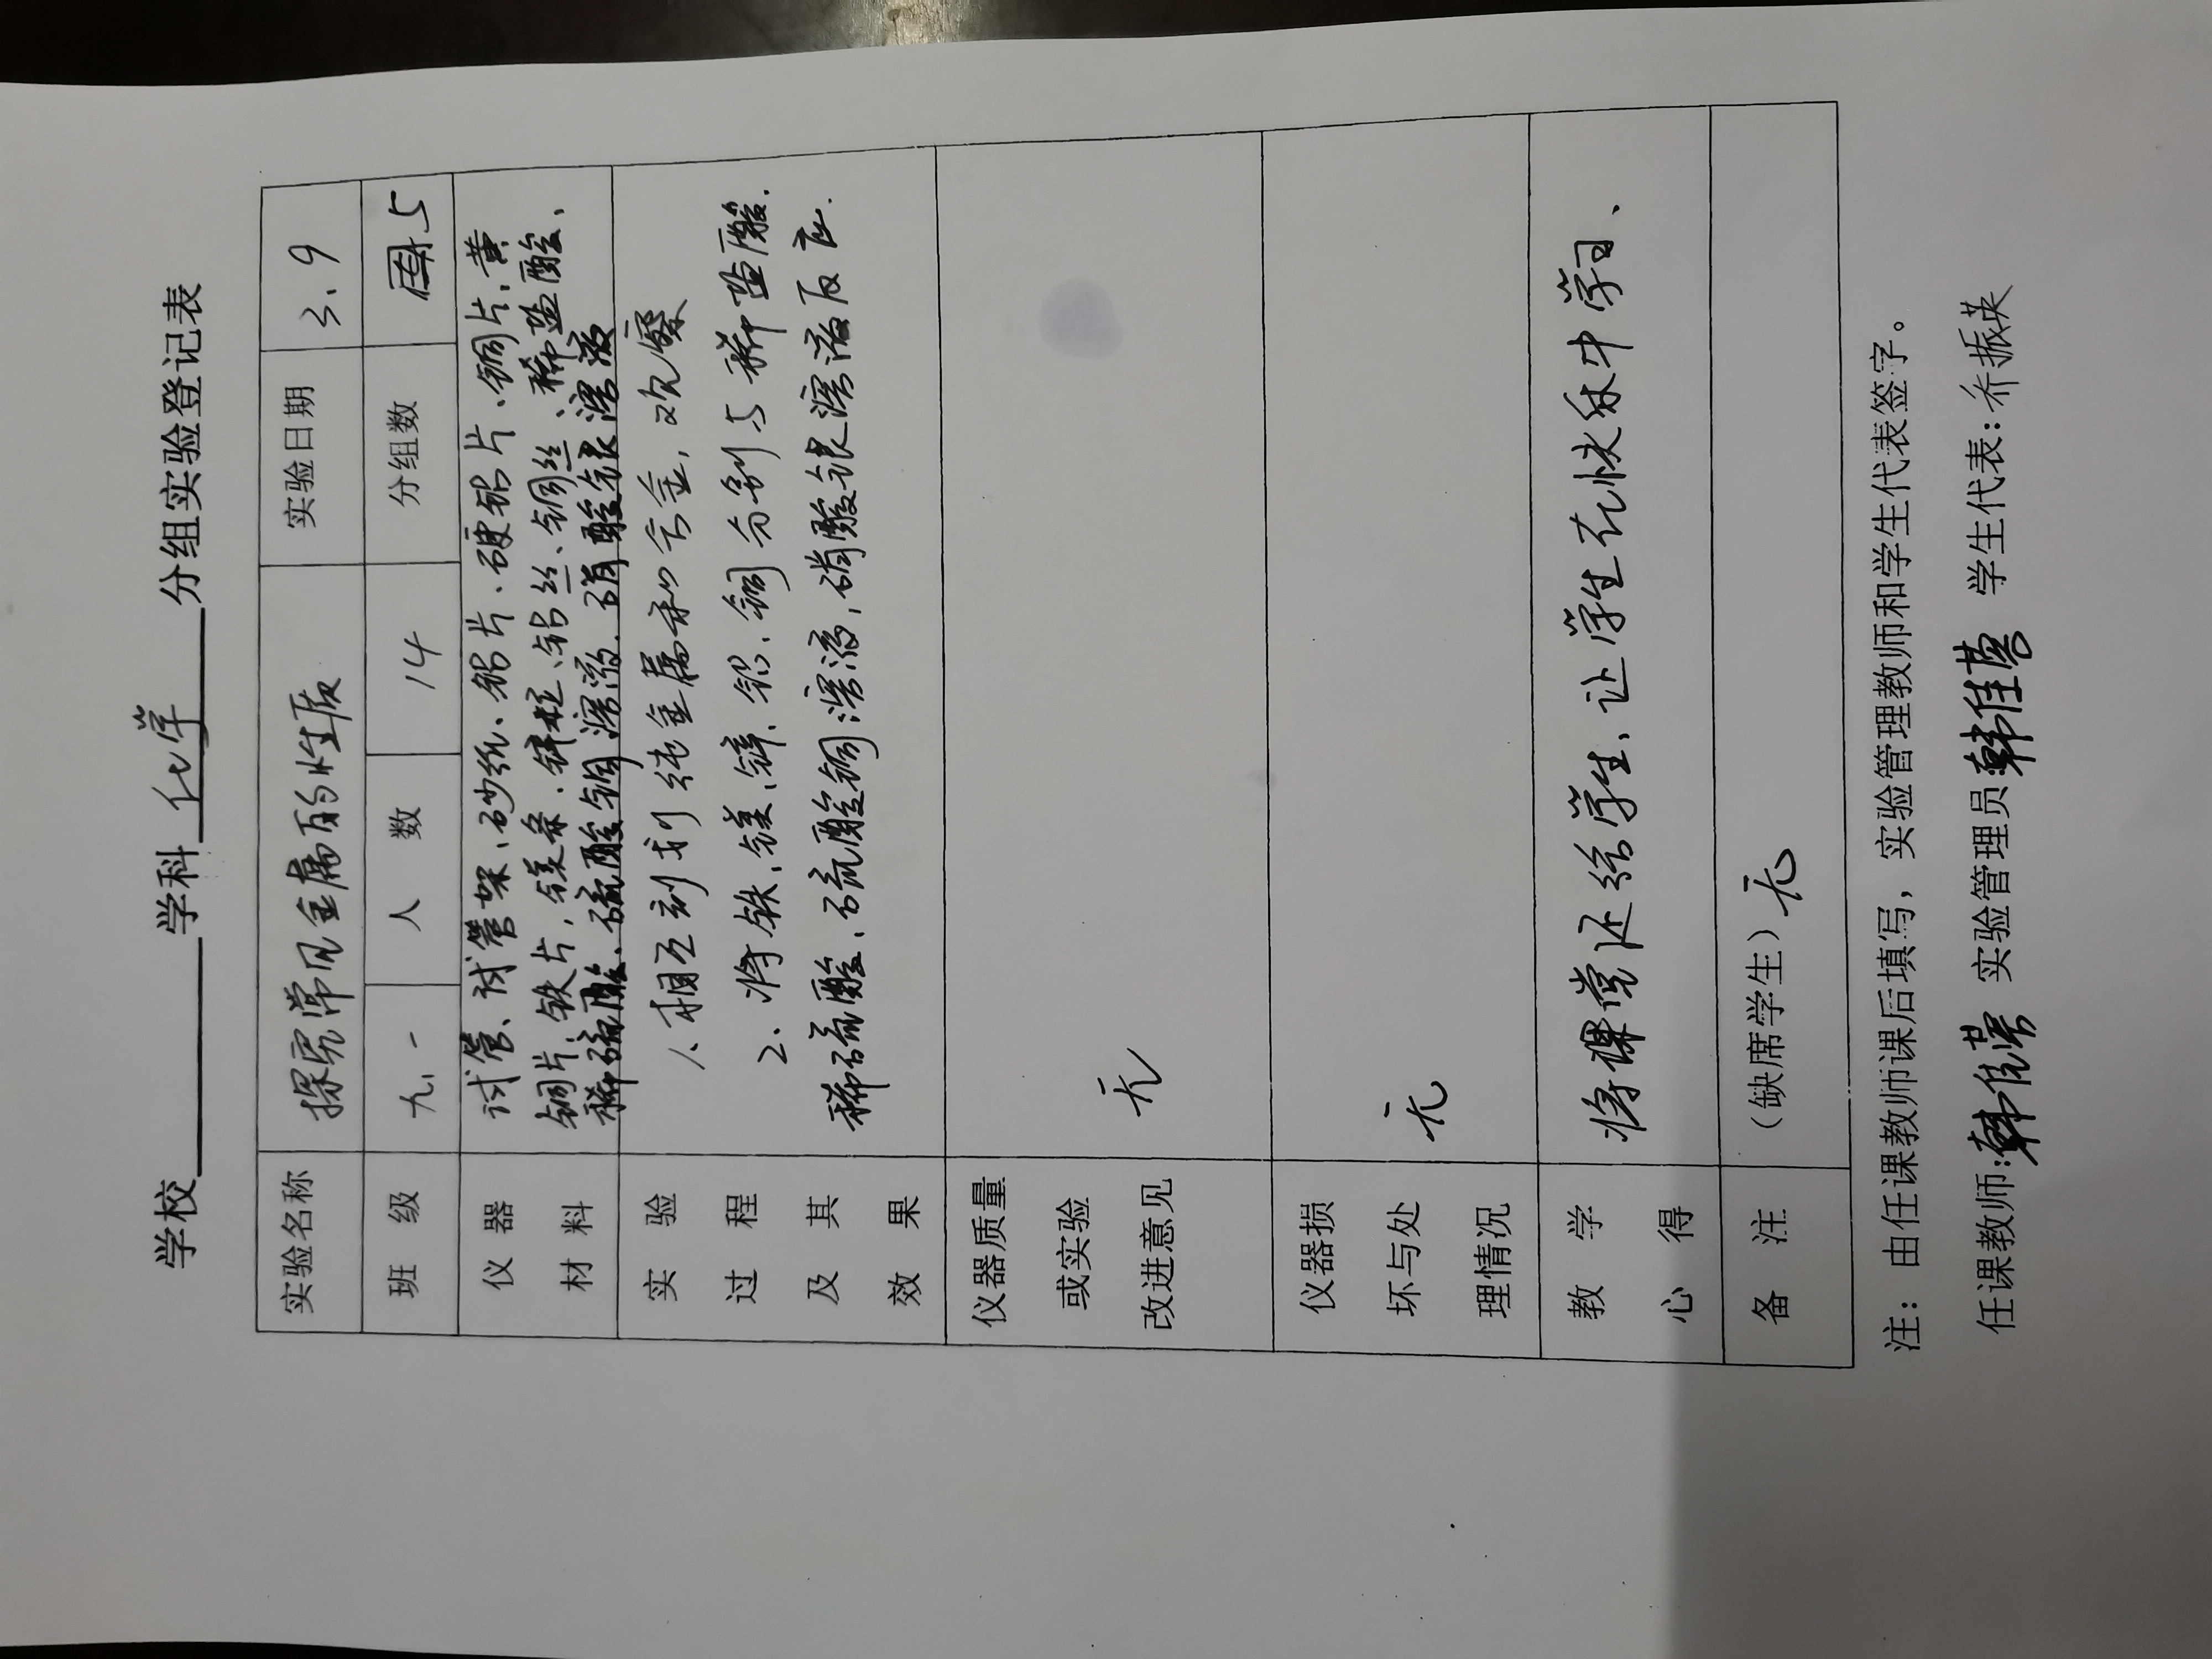 学校 学科 化学 分组实验登记表
实验名称 探究常见金属的性质 实验日期 3、9
班级 九、一 人数 14 分组数 5
仪器材料 试管、试管架、砂纸、铝片、硬铝片、铜片、黄
铜片、铁片、镁条、锌粒、铝丝、铜丝、稀盐酸、
稀硫酸、硫酸铜溶液、硝酸银溶液
实验过程及其效果 1、相互刻划纯金属和合金，观察
2、将铁、镁、锌、铝、铜分别与稀盐酸、
稀硫酸、硫酸铜溶液，硝酸银溶液反应.
仪器质量或实验改进意见 无
仪器损坏与处理情况 无
教学心得 将课堂还给学生、让学生在快乐中学习、
备注 （缺席学生）无
注：由任课教师课后填写，实验管理教师和学生代表签字。
任课教师:韩佳蓓 实验管理员:韩佳蓓 学生代表:乔振英